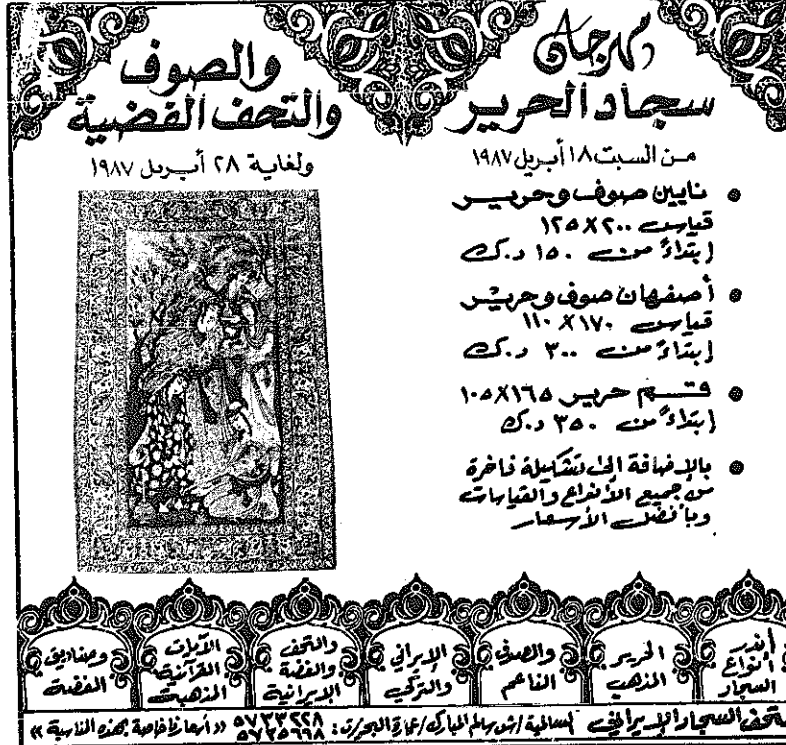 مهرجان
سجاد الحرير
والصوف
والتحف الفضية
من السبت ١٨ أبريل ١٩٨٧
ولغاية ٢٨ أبريل ١٩٨٧
• نايين صوف وحرير
قياس ٢٠٠×١٢٥
إبتداءً من ١٥٠ د.ك
• أصفهان صوف وحرير
قياس ١٧٠×١١٠
إبتداءً من ٣٠٠ د.ك
• قسم حرير ١٦٥×١٠٥
إبتداءً من ٣٥٠ د.ك
• بالإضافة إلى تشكيلة فاخرة
من جميع الأنواع والقياسات
وبأفضل الأسعار
أندر
أنواع
السجاد
الحرير
المذهب
والصوف
الناعم
الإيراني
والتركي
والتحف
والفضة
الإيرانية
الآيات
القرآنية
المذهبة
وصناديق
الفضة
متحف السجاد الإيراني السالمية / ش سالم المبارك / عمارة البحر / ت: ٥٧٣٣٢٢٨ ٥٧٢٥٦٩٨ «أسعار خاصة بهذه المناسبة»